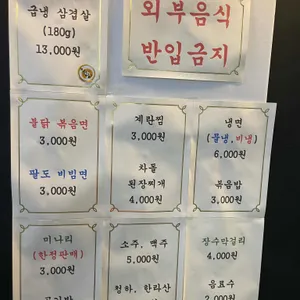 급냉 삼겹살
(180g)
13,000원
외부음식
반입금지
불닭 볶음면
3,000원
팔도 비빔면
3,000원
계란찜
3,000원
차돌
된장찌개
4,000원
냉면
(물냉,비냉)
6,000원
볶음밥
3,000원
미나리
(한정판매)
3,000원
공기밥
소주, 맥주
5,000원
청하, 한라산
장수막걸리
4,000원
음료수
2,000원